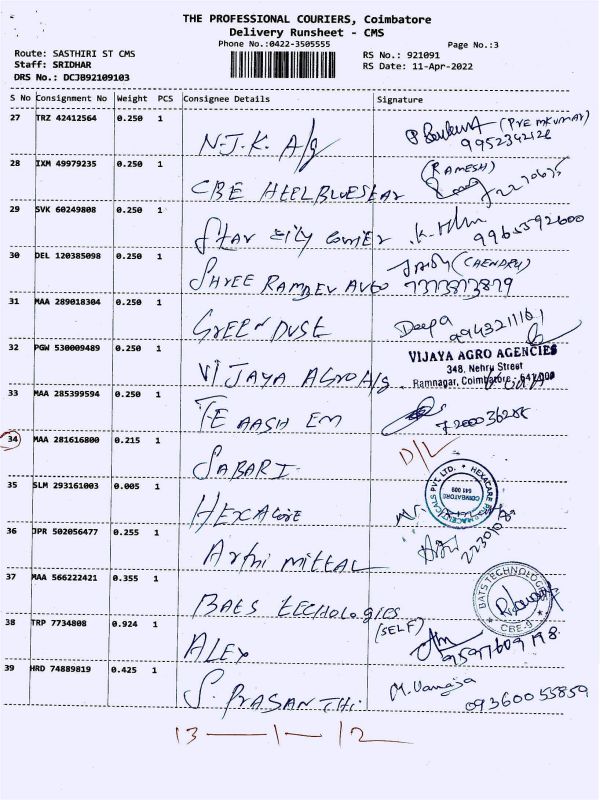 THE PROFESSIONAL COURIERS, Coimbatore
Delivery Runsheet - CMS
Phone No.:0422-3505555
Page No.:3
Route: SASTHIRI ST CMS
RS No.: 921091
Staff: SRIDHAR
RS Date: 11-Apr-2022
DRS No.: DCJ892109103
S No Consignment No Weight PCS Consignee Details Signature
27 TRZ 42412564 0.250 1 N.J.K. A/g (PREMKUMAR)
9952342126
28 IXM 49979235 0.250 1 CBE HEELBLUESTAR (RAMESH)
29 SVK 60249808 0.250 1 Star city courier 9965592600
30 DEL 120385098 0.250 1 SHREE RAMDEV AUTO
7373873879
31 MAA 289018304 0.250 1 GREEN DUSE Deepa
32 PGW 530009489 0.250 1 VIJAYA AGRO A/g
VIJAYA AGRO AGENCIES
348, Nehru Street
Ramnagar, Coimbatore - 641 009
33 MAA 285399594 0.250 1 TEAASH EM
34 MAA 281616800 0.215 1 SABARI D/L
35 SLM 293161003 0.005 1 HEXACARE
HEXACARE PHARMACEUTICALS PVT. LTD.
COIMBATORE
641 009
36 JPR 502056477 0.255 1 Arthi MITTAL
37 MAA 566222421 0.355 1 BATS TECHOLOGIES
BATS TECHNOLOGIES
CBE-9
38 TRP 7734808 0.924 1 ALEX (SELF)
9597609198
39 HRD 74889819 0.425 1 S. PRASANTHI. M. Vanaja
093600 55859
13 — 1 — 12